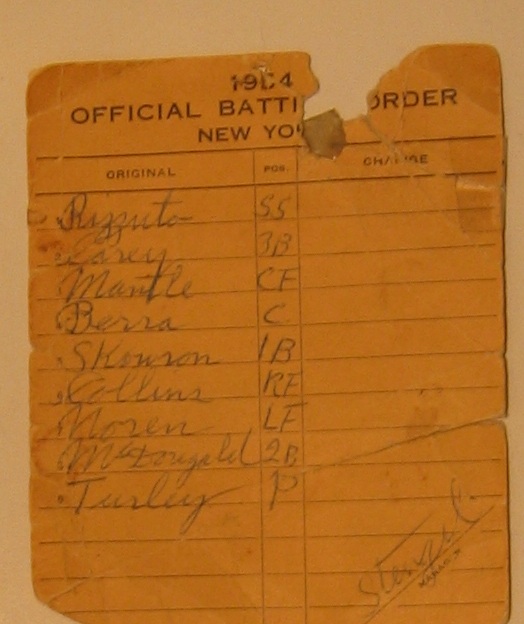 1954
OFFICIAL BATTI ORDER
NEW YO
ORIGINAL POS. CHANGE
Rizzuto SS
Carey 3B
Mantle CF
Berra C
Skowron 1B
Collins RF
Noren LF
McDougald 2B
Turley P
Stengel
MANAGER